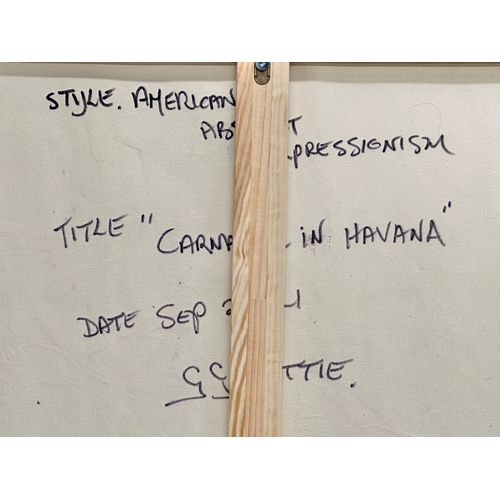 STYLE. AMERICAN
ABS T
PRESSIONISM
TITLE "CARNA IN HAVANA"
DATE SEP
GG TTIE.